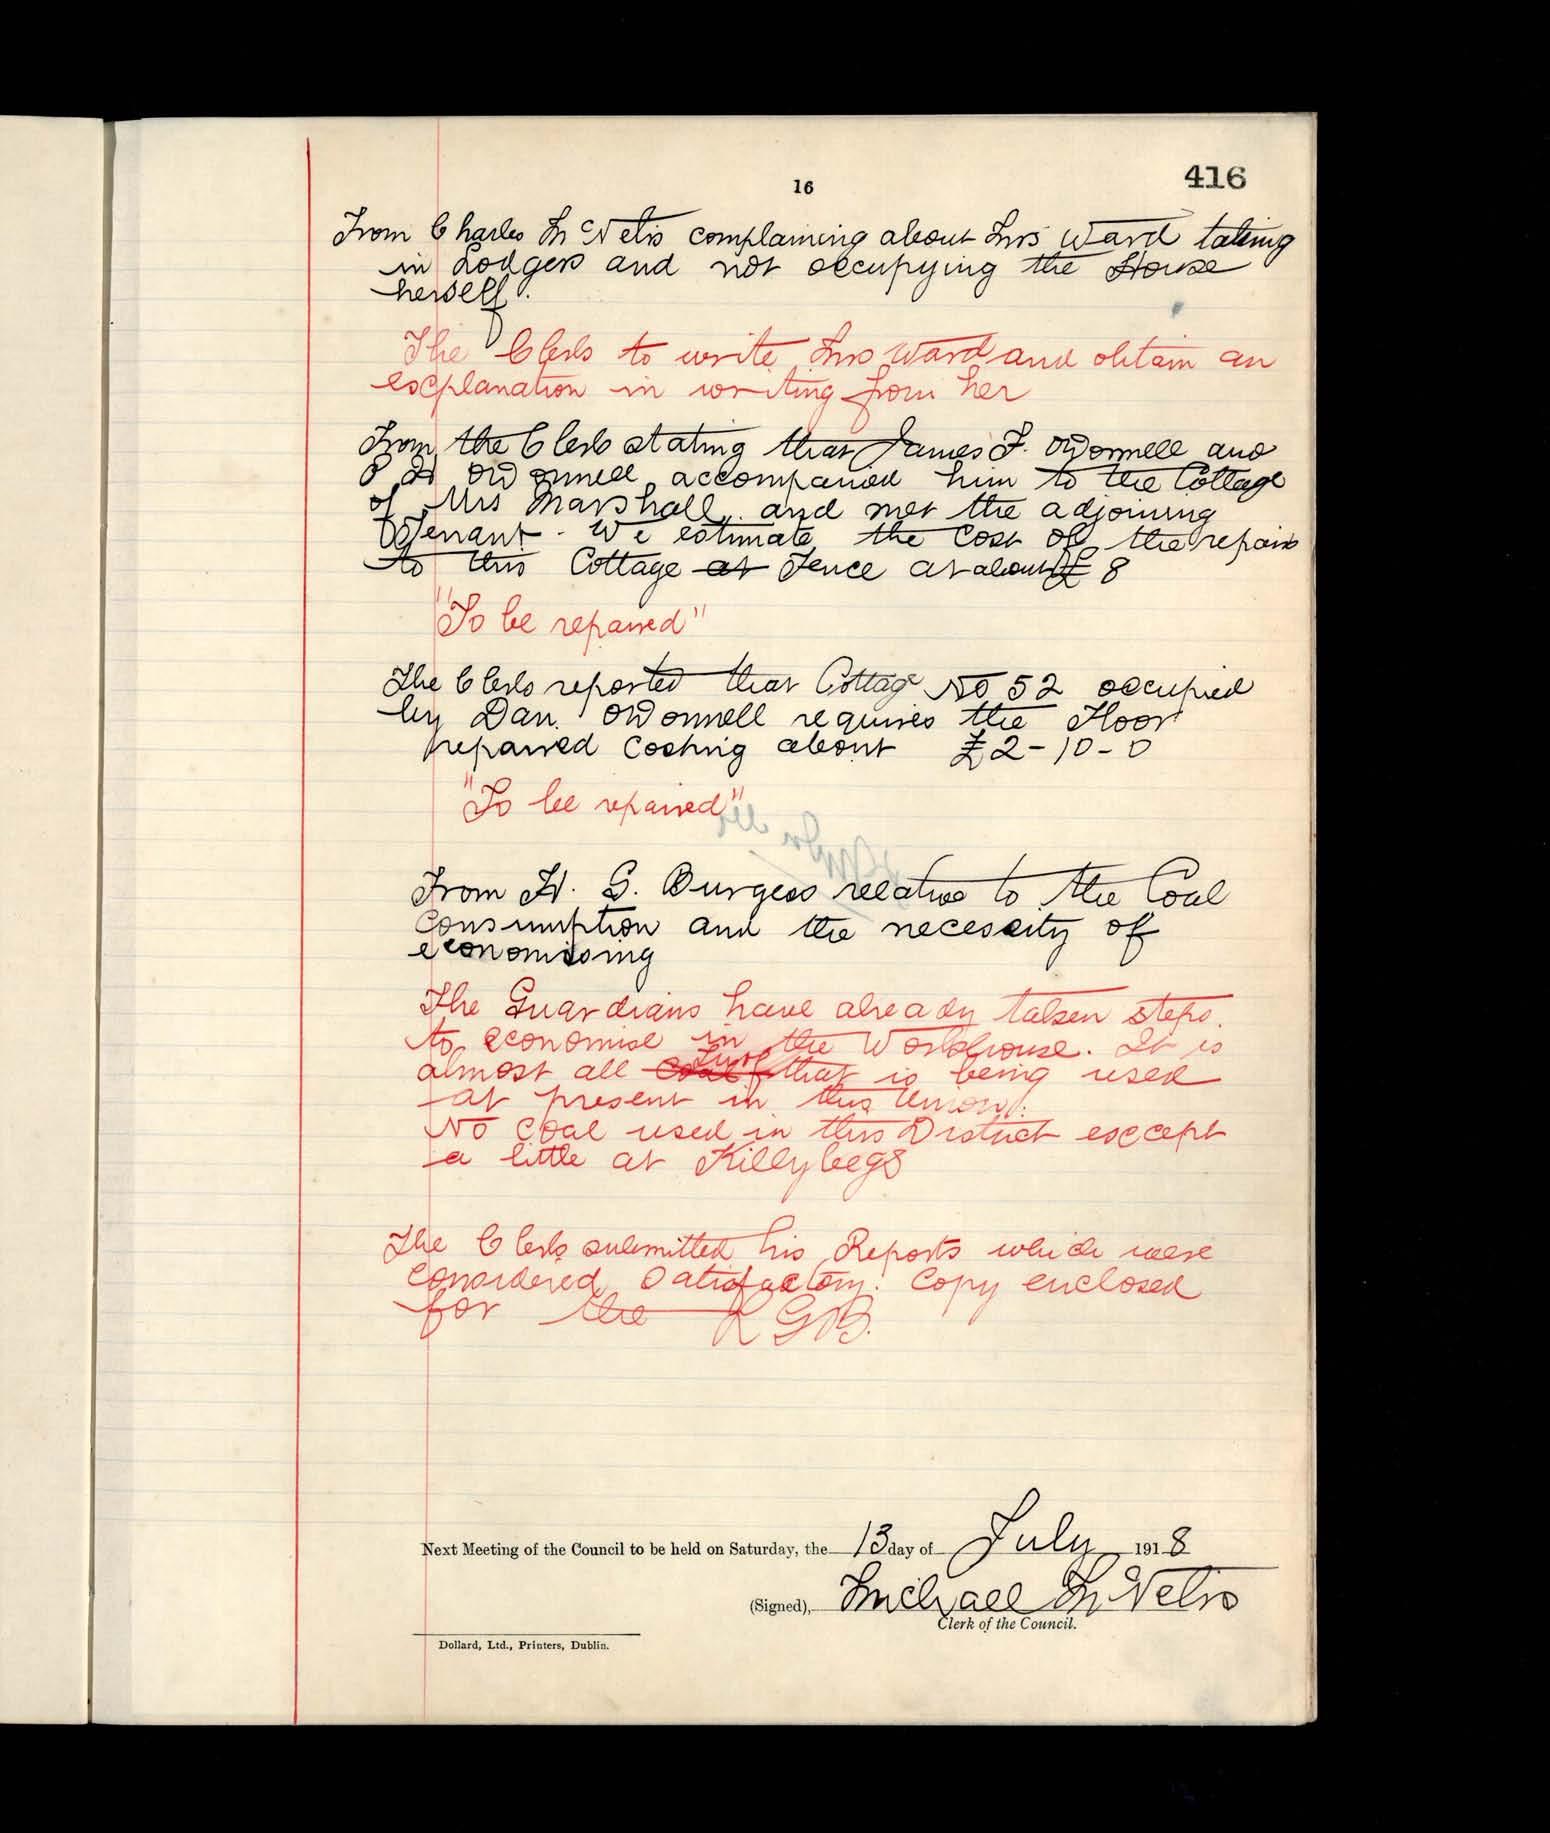 16
416
From Charles McNelis complaining about Mrs Ward taking
in Lodgers and not occupying the House
herself.
The Clerk to write Mrs Ward and obtain an
explanation in writing from her
From the Clerk stating that James F. O'Donnell and
O'Donnell accompanied him to the Cottage
of Mrs Marshall and met the adjoining
Tenant. We estimate the cost of the repairs
to this Cottage at Fence at about £8
"To be repaired"
The Clerk reported that Cottage No 52 occupied
by Dan. O'Donnell requires the Floor
repaired costing about £2-10-0
"To be repaired"
From H. G. Burgess relative to the Coal
Consumption and the necessity of
economising
The Guardians have already taken steps.
to economise in the Workhouse. It is
almost all coal Turf that is being used
at present in this Union.
No Coal used in this District except
a little at Killybegs
The Clerk submitted his Reports which were
considered satisfactory. Copy enclosed
for the LGB.
Next Meeting of the Council to be held on Saturday, the 13 day of July 1918
(Signed), Michael McNelis
Clerk of the Council.
Dollard, Ltd., Printers, Dublin.